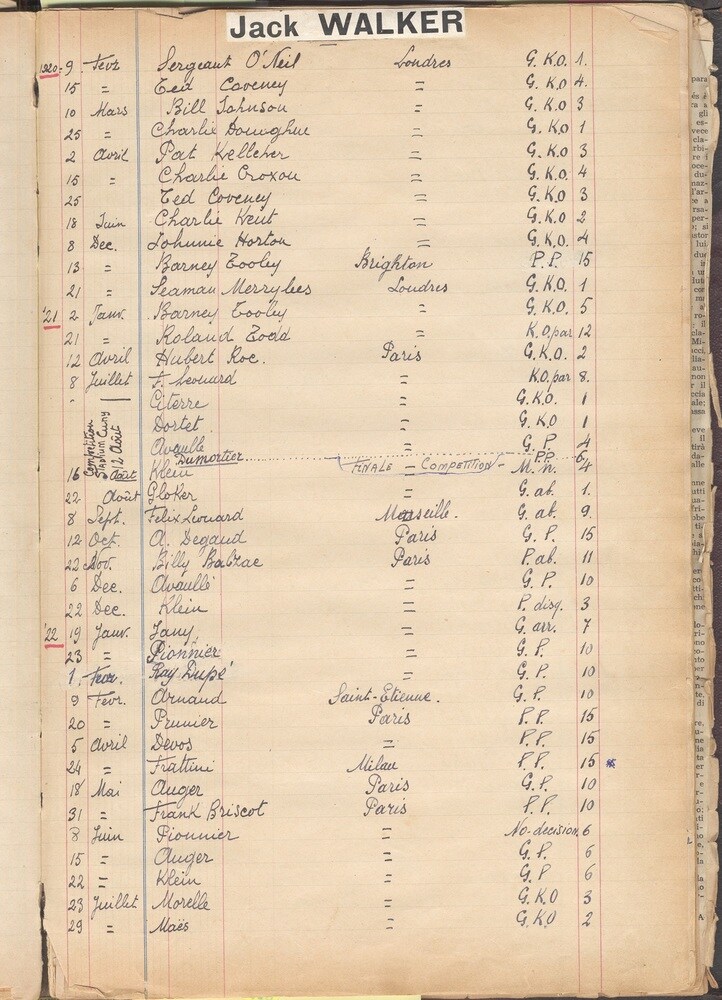 Jack WALKER
1920 - 9 Févr Sergeant O'Neil Londres G.K.O. 1.
15 = Ted Coveney = G.K.O 4.
10 Mars Bill Johnson = G.K.O 3
25 = Charlie Donoghue = G.K.O 1
2 Avril Pat Kelleher = G.K.O 3
15 = Charlie Croxon = G.K.O. 4
25 Ted Coveney = G.K.O 3
18 Juin Charlie Kent = G.K.O 2
8 Dec. Johnnie Horton = G.K.O. 4
13 = Barney Tooley Brighton P.P. 15
21 = Seaman Merrylees Londres G.K.O. 1
'21 2 Janv. Barney Tooley = G.K.O. 5
21 = Roland Todd = K.O.par 12
12 Avril Hubert Roc. Paris G.K.O. 2
8 Juillet F. Leonard = K.O.par 8.
Citerre = G.K.O. 1
Compétition Stadium Cuny 12 Août
Dortet = G.K.O 1
Avaulle = G.P. 4
Dumortier FINALE - COMPETITION - P.P. 6
16 Août Klein = M.n. 4
22 Août Gloker = G.ab. 1.
8 Sept. Felix Leonard Marseille. G.ab. 9.
12 Oct. A. Degand Paris G.P. 15
22 Nov. Billy Balzac Paris P.ab. 11
6 Dec. Avaullé = G.P. 10
22 Dec. Klein = P. disq. 3
'22 19 Janv. Jany = G. arr. 7
23 = Pionnier = G.P. 10
1. Fevr. Ray Dupé = G.P. 10
9 Fevr. Arnaud Saint-Etienne. G.P. 10
20 = Prunier Paris P.P. 15
5 Avril Devos = P.P. 15
24 = Frattini Milan P.P. 15
18 Mai Auger Paris G.P. 10
31 = Frank Briscot Paris P.P. 10
8 Juin Pionnier = No-decision 6
15 = Auger = G.P. 6
22 = Klein = G.P 6
23 Juillet Morelle = G.K.O 3
29 = Maës = G.K.O 2